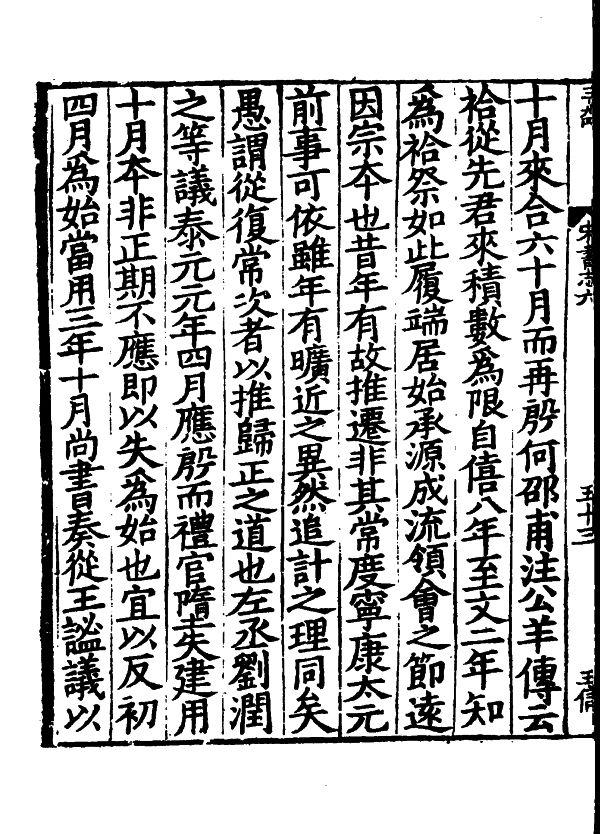 宋書志六
五十三
十月來合六十月而再殷何邵甫注公羊傳云
祫從先君來積數爲限自僖八年至文二年知
爲祫祭如此履端居始承源成流領會之節遠
因宗夲也昔年有故推遷非其常度寧康太元
前事可依雖年有曠近之異然追計之理同矣
愚謂從復常次者以推歸正之道也左丞劉潤
之等議泰元元年四月應殷而禮官墮失建用
十月夲非正期不應即以失爲始也宜以反初
四月爲始當用三年十月尚書奏從王謐議以